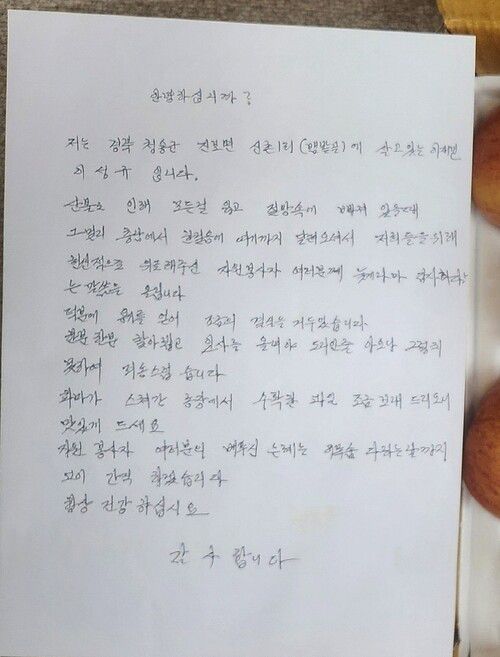 안녕하십니까?
저는 경북 청송군 진보면 신촌1리 에 살고있는 이재민
이 성 규 입니다.
산불로 인해 모든걸 잃고 절망속에 빠져 있을때
그 멀리 충남에서 한걸음에 여기까지 달려오셔서 저희들을 위해
헌신적으로 위로해주신 자원봉사자 여러분께 늦게나마 감사하다
는 말씀을 올립니다
덕분에 용기를 얻어 조금의 결실을 거두었습니다
한분 한분 찾아뵙고 인사를 올려야 도리인줄 아오나 그렇치
못하여 죄송스럽습니다
화마가 스쳐간 농장에서 수확한 과일 조금 보내 드리오니
맛있게 드세요
자원 봉사자 여러분의 베푸신 은혜는 다하는날까지
깊이 간직 하겠습니다
항상 건강 하십시요
감 사 합니다